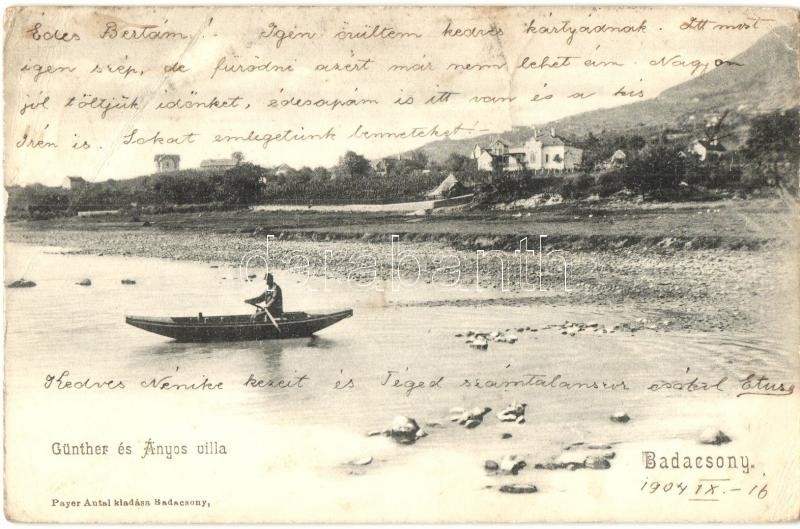 Édes Bertám! Igen örültem kedves kártyádnak. Itt most
igen szép, de fürödni azért már nem lehet ám. Nagyon
jól töltjük időnket, édesapám is itt van és a kis
Irén is. Sokat emlegetünk benneteket! —
darabanth
Kedves Nénike kezeit és Téged számtalanszor csókol Etus
Günther és Ányos villa
Badacsony.
1904 IX. – 16
Payer Antal kiadása Badacsony,